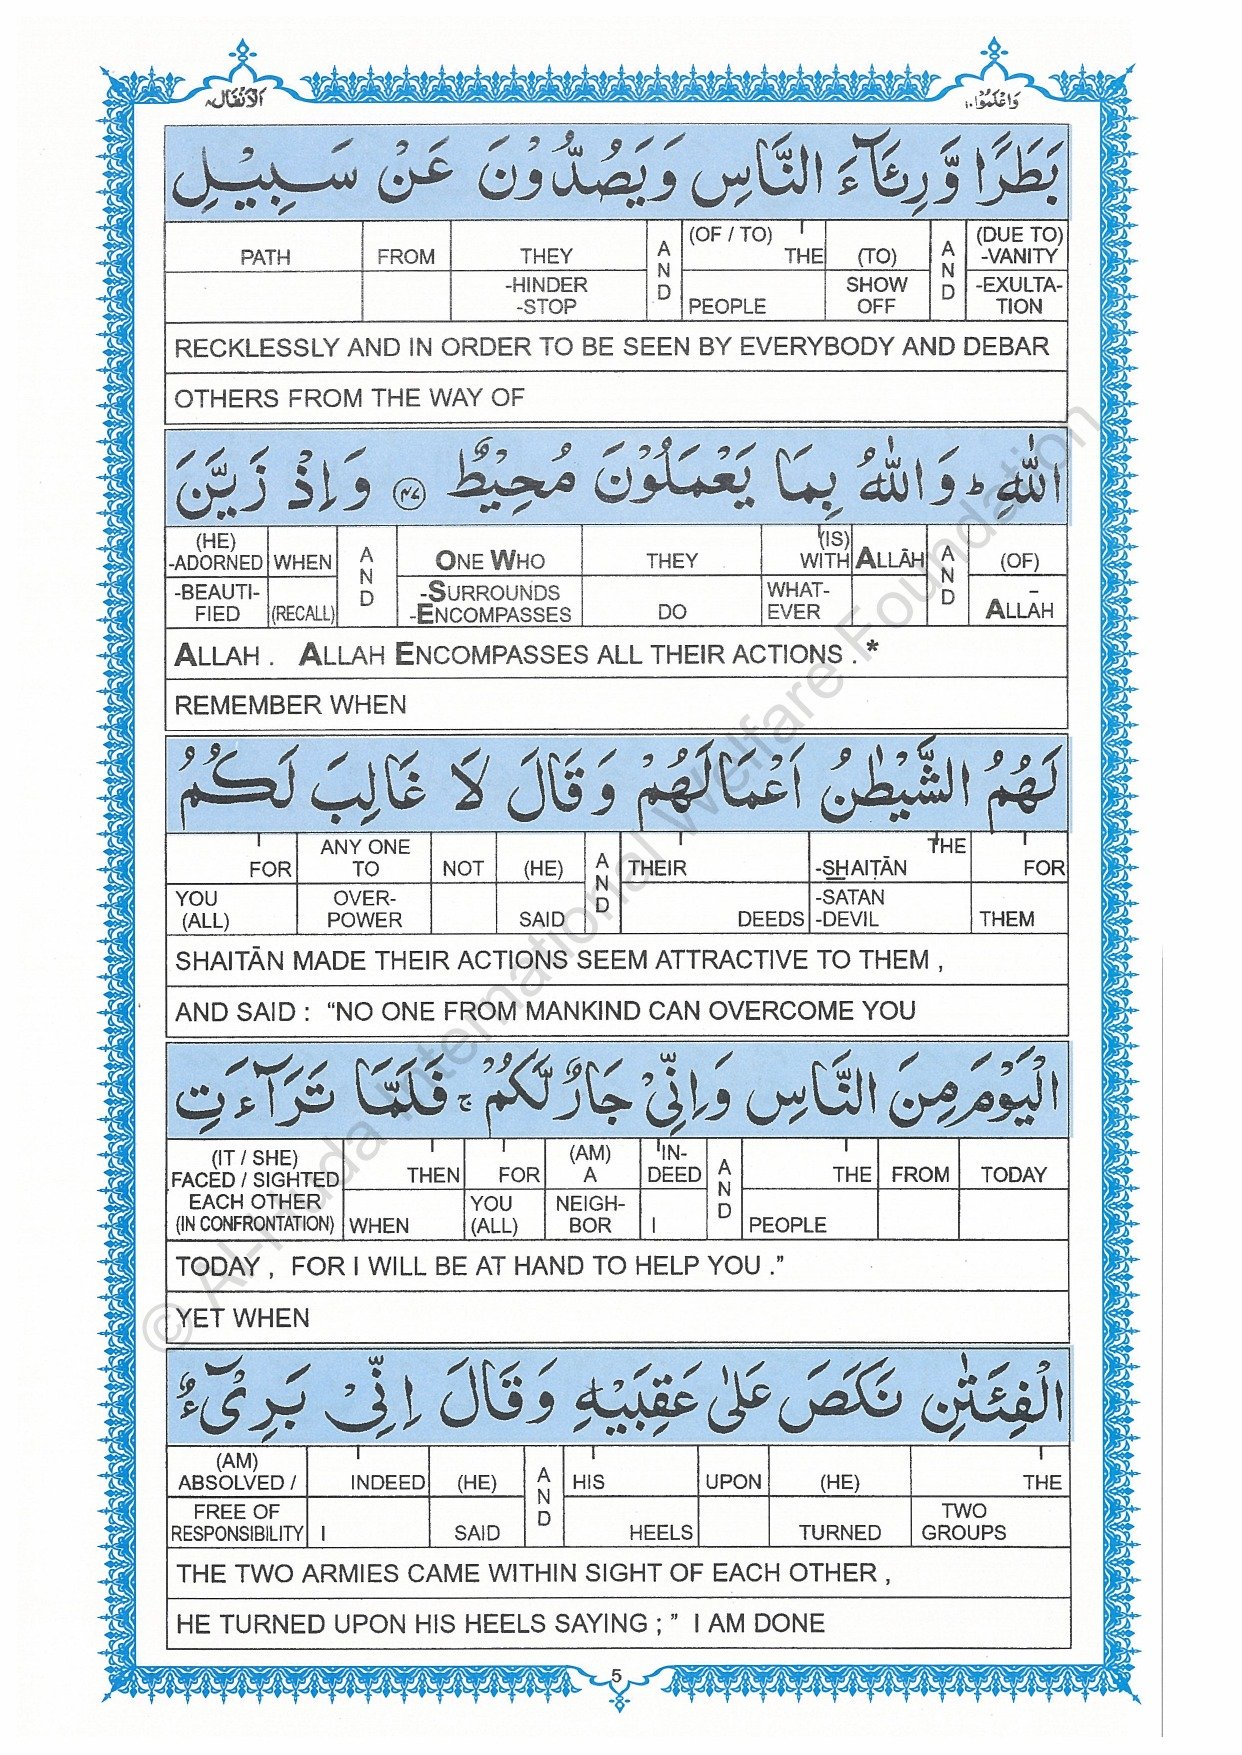 وَاعْلَمُوْا ١٠
الْاَنْفَال ٨
بَطَرًا وَّرِئَآءَ النَّاسِ وَيَصُدُّوْنَ عَنْ سَبِيْلِ
PATH FROM THEY AND (OF / TO) THE (TO) AND (DUE TO) -VANITY
-HINDER -STOP PEOPLE SHOW OFF -EXULTA-TION
RECKLESSLY AND IN ORDER TO BE SEEN BY EVERYBODY AND DEBAR
OTHERS FROM THE WAY OF
اللّٰهِ ؕ وَاللّٰهُ بِمَا يَعْمَلُوْنَ مُحِيْطٌ ﴿۴۷﴾ وَاِذْ زَيَّنَ
(HE) -ADORNED WHEN AND ONE WHO THEY (IS) WITH ALLĀH AND (OF)
-BEAUTI-FIED (RECALL) -SURROUNDS -ENCOMPASSES DO WHAT-EVER ALLAH
ALLAH . ALLAH ENCOMPASSES ALL THEIR ACTIONS . *
REMEMBER WHEN
لَهُمُ الشَّيْطٰنُ اَعْمَالَهُمْ وَقَالَ لَا غَالِبَ لَكُمُ
FOR ANY ONE TO NOT (HE) AND THEIR -SHAIṬĀN THE FOR
YOU (ALL) OVER-POWER SAID DEEDS -SATAN -DEVIL THEM
SHAITĀN MADE THEIR ACTIONS SEEM ATTRACTIVE TO THEM ,
AND SAID : “NO ONE FROM MANKIND CAN OVERCOME YOU
الْيَوْمَ مِنَ النَّاسِ وَاِنِّيْ جَارٌ لَّكُمْ ۚ فَلَمَّا تَرَآءَتِ
(IT / SHE) FACED / SIGHTED THEN FOR (AM) A IN-DEED AND THE FROM TODAY
EACH OTHER (IN CONFRONTATION) WHEN YOU (ALL) NEIGH-BOR I PEOPLE
TODAY , FOR I WILL BE AT HAND TO HELP YOU .”
YET WHEN
الْفِئَتٰنِ نَكَصَ عَلٰى عَقِبَيْهِ وَقَالَ اِنِّيْ بَرِيْٓءٌ
(AM) ABSOLVED / INDEED (HE) AND HIS UPON (HE) THE
FREE OF RESPONSIBILITY I SAID HEELS TURNED TWO GROUPS
THE TWO ARMIES CAME WITHIN SIGHT OF EACH OTHER ,
HE TURNED UPON HIS HEELS SAYING ; ” I AM DONE
5
© Al-Huda International Welfare Foundation